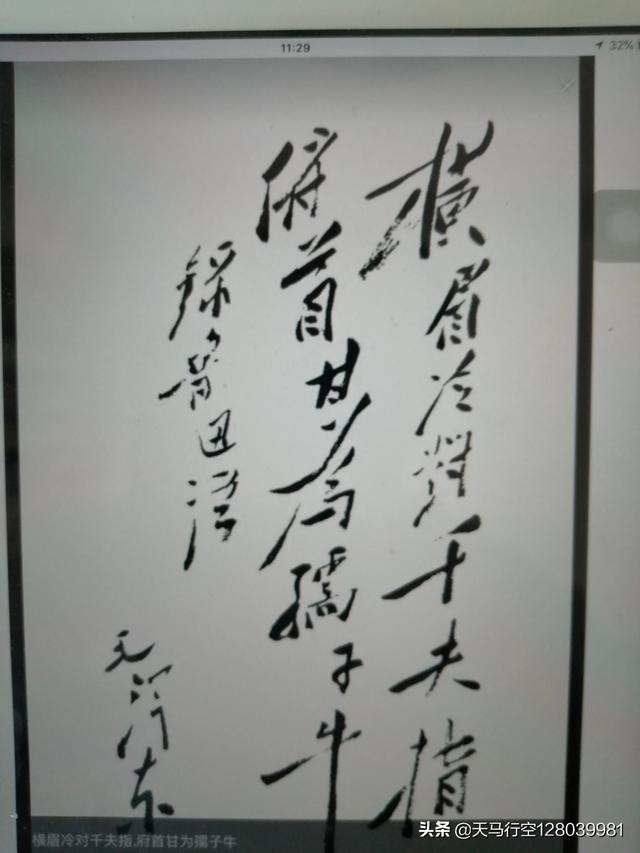 11:29
32%
横眉冷對千夫指
俯首甘為孺子牛
錄魯迅語
毛泽东
横眉冷对千夫指,府首甘为孺子牛
头条 @天马行空128039981